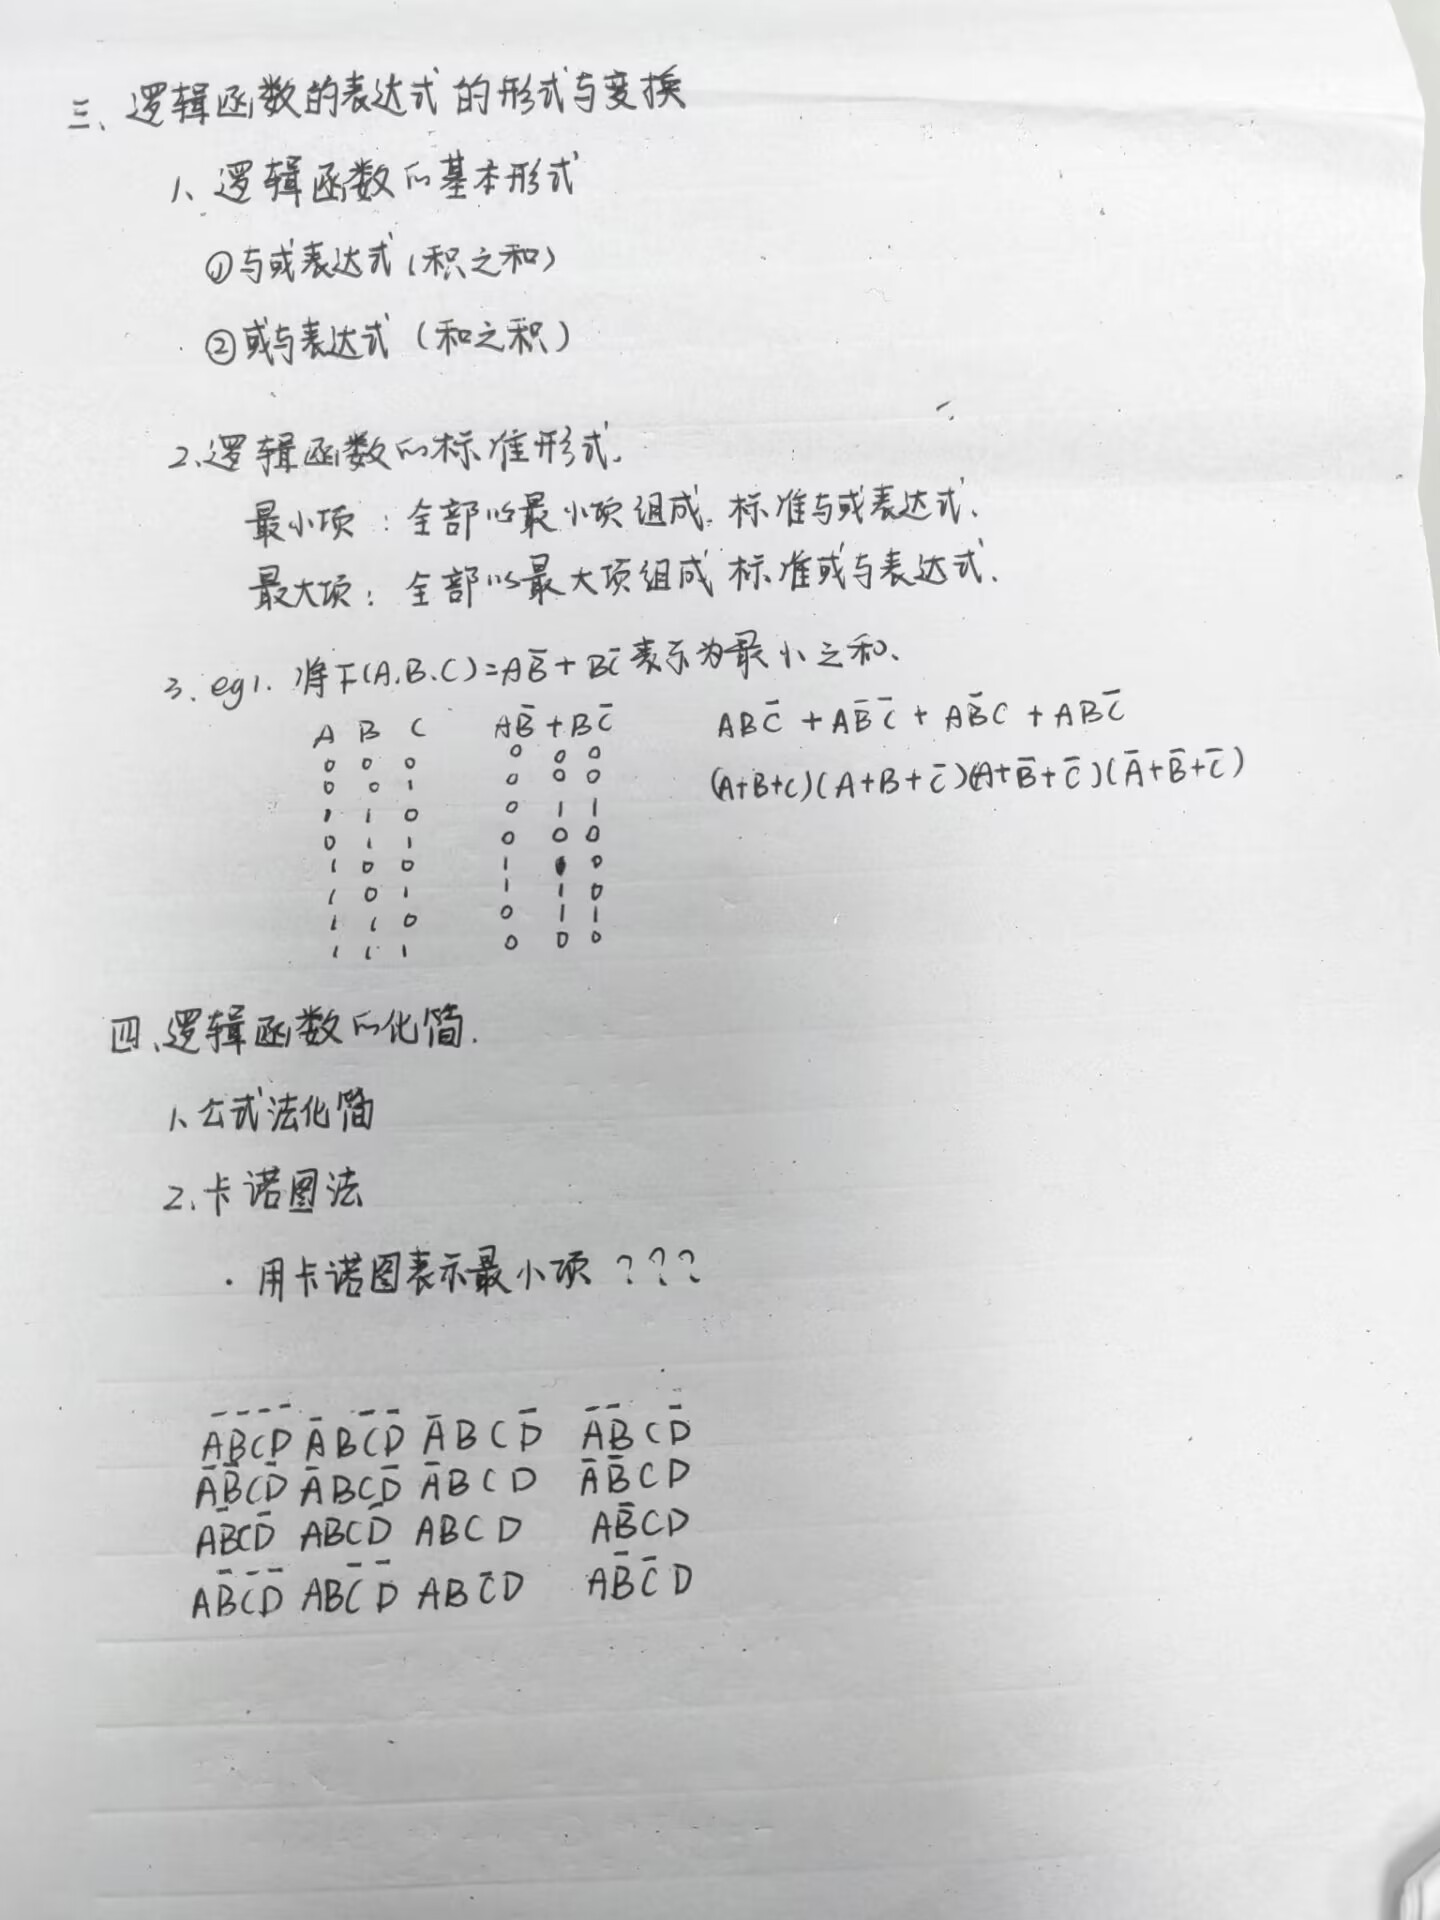 三、逻辑函数的表达式的形式与变换
1、逻辑函数的基本形式
①与或表达式(积之和)
②或与表达式(和之积)
2、逻辑函数的标准形式.
最小项:全部以最小项组成.标准与或表达式.
最大项:全部以最大项组成 标准或与表达式.
3. eg1. 将F(A.B.C)=AB̅+BC̅表示为最小之和、
A B C AB̅+BC̅ ABC̅+AB̅C̅+AB̅C+ABC̅
0 0 0 0 0 0 (A+B+C)(A+B+C̅)(A+B̅+C̅)(A̅+B̅+C̅)
0 0 1 0 0 0
1 0 0 1 1
0 1 1 0 0 0
1 0 0 1 0
1 0 1 1 1 0
1 1 0 0 1 1
1 1 1 0 0 0
四、逻辑函数的化简.
1、公式法化简
2、卡诺图法
· 用卡诺图表示最小项 ???
A̅B̅C̅D̅ A̅BC̅D̅ A̅BCD̅ A̅B̅CD̅
A̅B̅CD̅ A̅BCD̅ A̅BCD A̅B̅CD
AB̅CD̅ ABCD̅ ABCD AB̅CD
AB̅C̅D̅ ABC̅D̅ ABC̅D AB̅C̅D